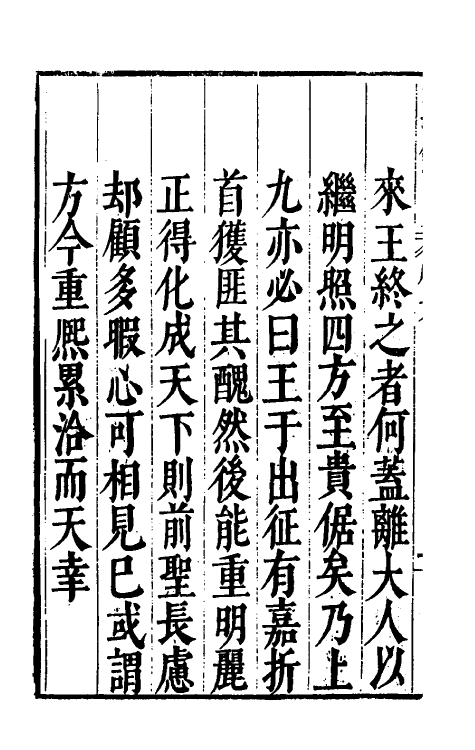 來王終之者何蓋離大人以
繼明照四方至貴倨矣乃上
九亦必曰王于出征有嘉折
首獲匪其醜然後能重明麗
正得化成天下則前聖長慮
却顧多暇心可相見巳或謂
方今重熈累洽而天幸